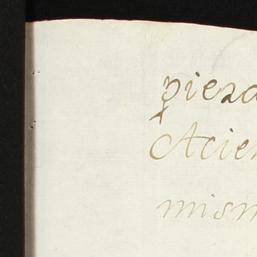 pieza
Acien
mism